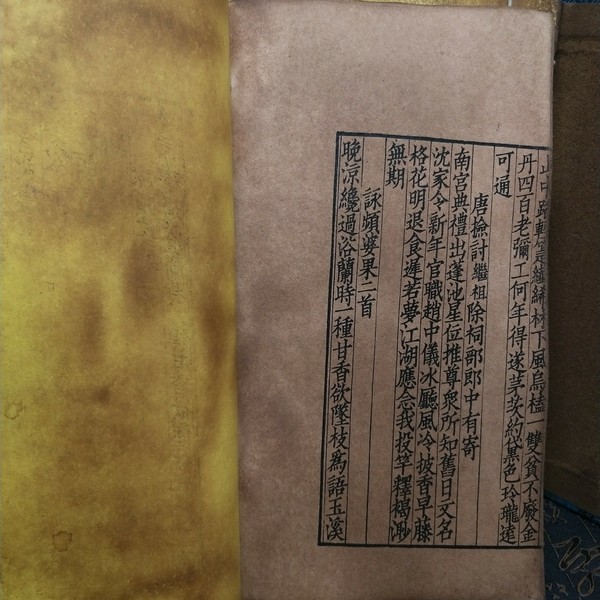 丹四百老彌工何年得遂茅茨約黑色玲瓏達
可通
唐檢討繼祖除祠部郎中有寄
南宮典禮出蓬池星位推尊衆所知舊日文名
沈家令新年官職趙中儀冰廳風冷披香早藤
格花明退食遲若夢江湖應念我投竿釋褐渺
無期
詠頻婆果二首
晚涼纔過浴蘭時一種甘香欲墜枝爲語玉溪